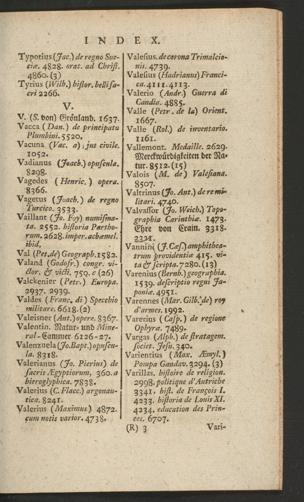 INDEX.
Typotius (Jac.) de regno Sue-
ciæ. 4828. orat. ad Christ.
4860. (3)
Tyrius (Wilh.) histor. belli sa-
cri 2266.
V.
V. (S. von) Grünland. 1637.
Vacca (Dan.) de principatu
Plumbini. 5520.
Vacuna (Vac. a) jus civile.
1052.
Vadianus (Joach.) opuscula.
8298.
Vagedes (Henric.) opera.
8366.
Vagetus (Joach.) de regno
Turcico. 3533.
Vaillant (Jo. Foy) numisma-
ta. 2552. historia Partho-
rum. 2628. imper. achæmel.
ibid.
Val (Pet. de) Geograph. 1582.
Valand (Godofr.) congr. vi-
ctor. & victi. 759. c (26)
Valckenier (Petr.) Europa.
3937. 3939.
Valdes (Franc. di) Specchio
militare. 6618. (2)
Valeisner (Ant.) opere. 8367.
Valentin. Natur- und Mine-
ral-Cammer 6126-27.
Valenzuela (Jo. Bapt.) opuscu-
la. 8318.
Valerianus (Jo. Pierius) de
sacris Ægyptiorum. 360. a
hieroglyphica. 7838.
Valerius (C. Flacc.) argonau-
tica. 8241.
Valerius (Maximus) 4872.
cum notis varior. 4738.
Valesius. de corona Trimalcio-
nis. 4739.
Valesius (Hadrianus) Franci-
ca. 4111. 4113.
Valerio (Andr.) Guerra di
Candia. 4885.
Valle (Petr. de la) Orient.
1667.
Valle (Rol.) de inventario.
1161.
Vallemont. Medaille. 2629.
Merckwürdigkeiten der Na-
tur. 8512. (15)
Valois (M. de) Valesiana.
8507.
Valtrinus (Jo. Ant.) de re mi-
litari. 4740.
Valvassor (Jo. Weich.) Topo-
graphia Carinthiæ. 1473.
Ehre von Crain. 3318.
3321.
Vannini (J. Cæs.) amphithea-
trum providentiæ 415. vi-
ta & scripta. 7280. (13)
Varenius (Bernh.) geographia.
1539. descriptio regni Ja-
poniæ. 4951.
Varennes (Mar. Gilb. de) roy
d'armes. 1992.
Varerius (Casp.) de regione
Ophyra. 7489.
Vargas (Alph.) de stratagem.
societ. Jesu. 340.
Varientius (Max. Æmyl.)
Pompa Gandav. 3294. (3)
Varillas. histoire de religion.
2998. politique d'Autriche
3341. hist. de François I.
4233. historia de Louis XI.
4234. education des Prin-
ces. 6707.
(R) 3 Vari-